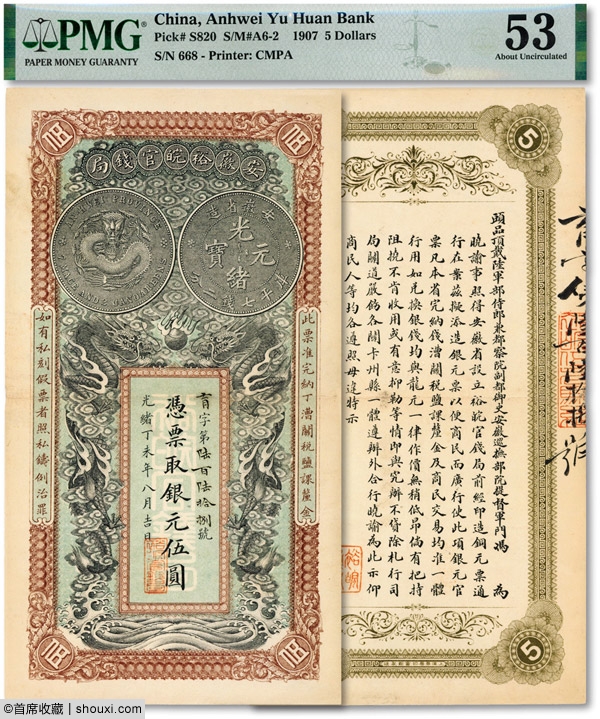 PMG
PAPER MONEY GUARANTY
China, Anhwei Yu Huan Bank
Pick# S820 S/M#A6-2 1907 5 Dollars
S/N 668 - Printer: CMPA
53
About Uncirculated
安徽裕皖官錢局
安徽省造
光緒元寶
庫平七
此票准完納丁漕關稅鹽課釐金
字第陸百陸拾捌號
憑票取銀元伍圓
光緒丁未年八月吉日
如有私刻假票者照私鑄例治罪
5
頭品頂戴陸軍部侍郎兼都察院副都御史安徽巡撫部院提督軍門馮 為
曉諭事照得安徽省設立裕皖官錢局前經印造銅元票通
行在案茲擬添造銀元票以便商民而廣行使此項銀元官
票凡本省完納錢漕關稅鹽課釐金及商民交易均准一體
行用如兌換銀錢均與龍元一律作價無稍低昂倘有把持
阻撓不肯收用或有意抑勒等情即與究辦不貸除札行司
局關道飭各關卡州縣一體遵辦外合行曉諭為此示仰
商民人等均各遵照毋違特示
裕皖
5
©首席收藏 | shouxi.com